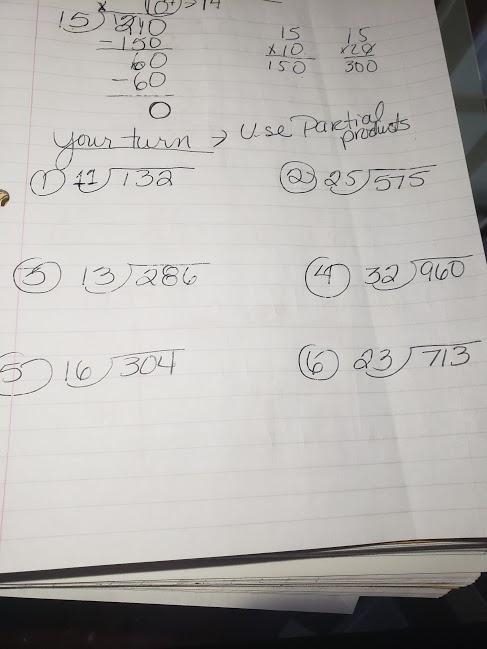 10+ > 14
15)210
-150
60
-60
0
15
×10
150
15
×20
300
your turn → Use Partial products
① 11)132
② 25)575
③ 13)286
④ 32)960
⑤ 16)304
⑥ 23)713